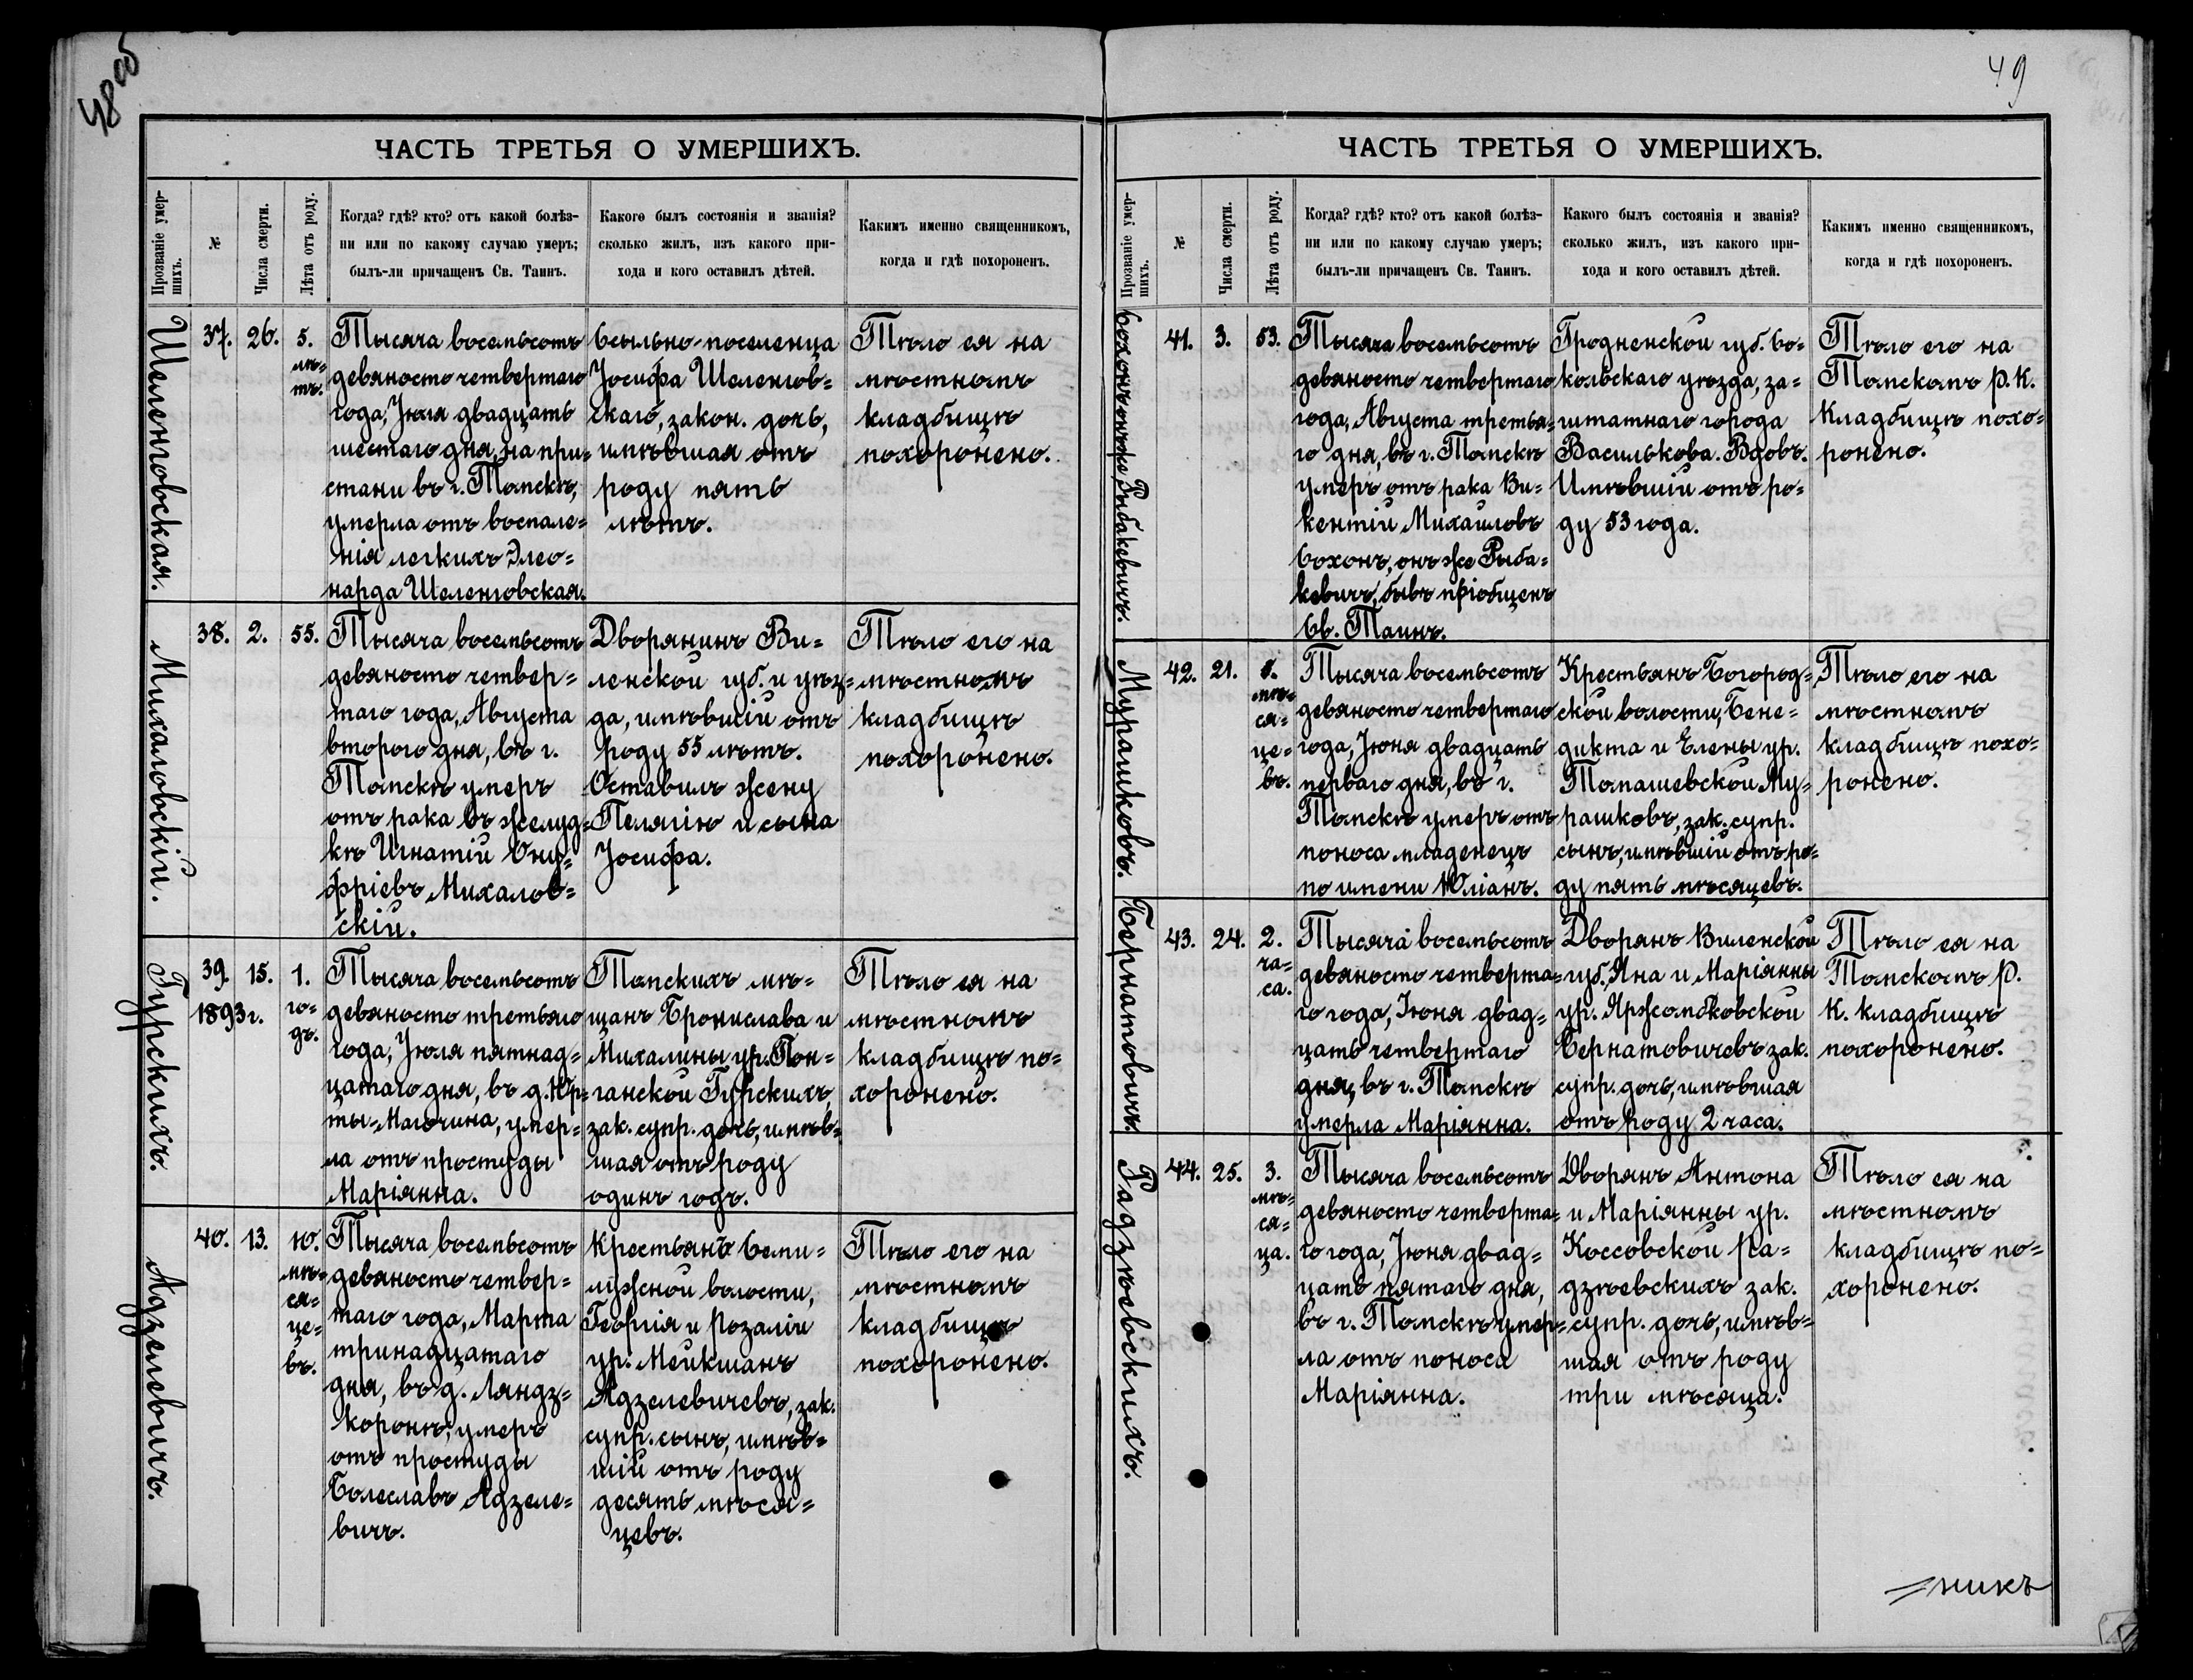 48 об
ЧАСТЬ ТРЕТЬЯ О УМЕРШИХЪ.
Прозваніе умер-
шихъ.
№
Числа смерти.
Лѣта отъ роду.
Когда? гдѣ? кто? отъ какой болѣз-
ни или по какому случаю умеръ;
былъ-ли причащенъ Св. Таинъ.
Какого былъ состоянія и званія?
сколько жилъ, изъ какого при-
хода и кого оставилъ дѣтей.
Какимъ именно священникомъ,
когда и гдѣ похороненъ.
Шеленговская.
37.
26.
5.
лѣ=
тъ.
Тысяча восемьсотъ
девяносто четвертаго
года, Іюля двадцать
шестаго дня, на при=
стани въ г. Томскѣ,
умерла отъ воспале=
нія легкихъ Элео=
нарда Шеленговская.
Ссыльно-поселенца
Іосифа Шеленгов=
скаго, закон. дочь,
имѣвшая отъ
роду пять
лѣтъ.
Тѣло ея на
мѣстномъ
кладбищѣ
похоронено.
Михаловскій.
38.
2.
55.
Тысяча восемьсотъ
девяносто четвер=
таго года, Августа
второго дня, въ г.
Томскѣ умеръ
отъ рака въ желуд=
кѣ Игнатій Ону=
фріевъ Михалов=
скій.
Дворянинъ Ви=
ленской губ. и уѣз=
да, имѣвшій отъ
роду 55 лѣтъ.
Оставилъ жену
Пелягію и сына
Іосифа.
Тѣло его на
мѣстномъ
кладбищѣ
похоронено.
Гурскихъ.
39.
1893 г.
15.
1.
го=
дъ.
Тысяча восемьсотъ
девяносто третьяго
года, Іюля пятнад=
цатаго дня, въ д. Юр=
ты-Магочина, умер=
ла отъ простуды
Маріянна.
Томскихъ мѣ=
щанъ Бронислава и
Михалины ур. Пон=
ганской Гурскихъ,
зак. супр. дочь, имѣв=
шая отъ роду
одинъ годъ.
Тѣло ея на
мѣстномъ
кладбищѣ по=
хоронено.
Адзелевичъ.
40.
13.
10.
мѣ=
ся=
це=
въ.
Тысяча восемьсотъ
девяносто четвер=
таго года, Марта
тринадцатаго
дня, въ д. Ляндз=
коронѣ, умеръ
отъ простуды
Болеславъ Адзеле=
вичъ.
Крестьянъ Семи=
лужной волости,
Георгія и Розаліи
ур. Мейкшанъ
Адзелевичевъ, зак.
супр. сынъ, имѣв=
шій отъ роду
десять мѣся=
цевъ.
Тѣло его на
мѣстномъ
кладбищѣ
похоронено.
49
ЧАСТЬ ТРЕТЬЯ О УМЕРШИХЪ.
Прозваніе умер-
шихъ.
№
Числа смерти.
Лѣта отъ роду.
Когда? гдѣ? кто? отъ какой болѣз-
ни или по какому случаю умеръ;
былъ-ли причащенъ Св. Таинъ.
Какого былъ состоянія и званія?
сколько жилъ, изъ какого при-
хода и кого оставилъ дѣтей.
Какимъ именно священникомъ,
когда и гдѣ похороненъ.
Сохонъ онъ же Рыбакевичъ.
41.
3.
53.
Тысяча восемьсотъ
девяносто четвертаго
года, Августа третья=
го дня, въ г. Томскѣ
умеръ отъ рака Ви=
кентій Михаиловъ
Сохонъ, онъ же Рыба=
кевичъ, бывъ пріобщенъ
Св. Таинъ.
Гродненской губ. Со=
кольскаго уѣзда, за=
штатнаго города
Василькова. Вдовъ.
Имѣвшій отъ ро=
ду 53 года.
Тѣло его на
Томскомъ Р. К.
кладбищѣ похо=
ронено.
Мурашковъ.
42.
21.
мѣ=
ся=
це=
въ.
Тысяча восемьсотъ
девяносто четвертаго
года, Іюня двадцать
перваго дня, въ г.
Томскѣ умеръ отъ
поноса младенецъ
по имени Юліанъ.
Крестьянъ Богород=
ской волости, Бене=
дикта и Елены ур.
Томашевской Му=
рашковъ, зак. супр.
сынъ, имѣвшій отъ ро=
ду пять мѣсяцевъ.
Тѣло его на
мѣстномъ
кладбищѣ похо=
ронено.
Бернатовичъ.
43.
24.
2.
ча=
са.
Тысяча восемьсотъ
девяносто четверта=
го года, Іюня двад=
цать четвертаго
дня, въ г. Томскѣ
умерла Маріянна.
Дворянъ Виленской
губ. Яна и Маріянны
ур. Яржомбковской
Бернатовичевъ зак.
супр. дочь, имѣвшая
отъ роду 2 часа.
Тѣло ея на
Томскомъ Р.
К. кладбищѣ
похоронено.
Гадзѣевскихъ.
44.
25.
3.
мѣ=
ся=
ца.
Тысяча восемьсотъ
девяносто четверта=
го года, Іюня двад=
цать пятаго дня,
въ г. Томскѣ умер=
ла отъ поноса
Маріянна.
Дворянъ Антона
и Маріянны ур.
Коссовской Ра=
дзѣевскихъ зак.
супр. дочь, имѣв=
шая отъ роду
три мѣсяца.
Тѣло ея на
мѣстномъ
кладбищѣ по=
хоронено.
=никъ